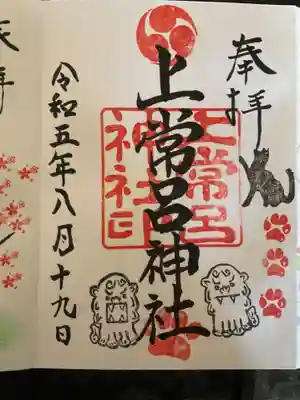 奉拝
上常呂神社
上常呂
神社印
令和五年八月十九日